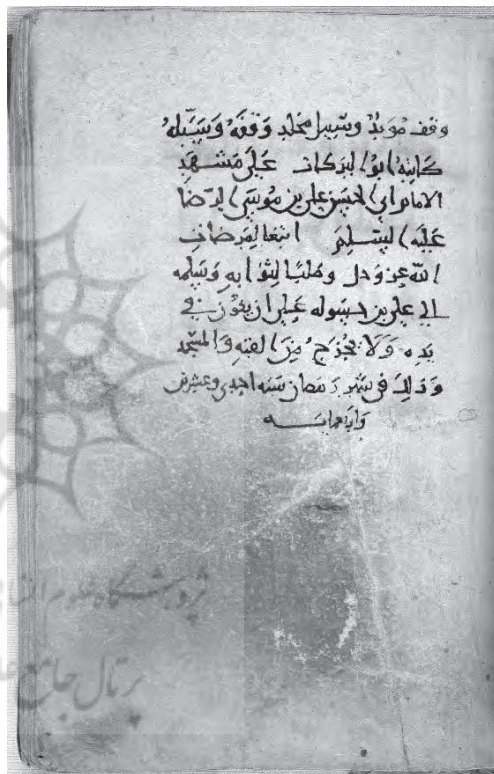 وقف مؤبد وسبيل مخلد وقفه وسبله
كاتبه ابو البركات على مشهد
الامام ابي الحسن علي بن موسى الرضا
عليه السلم ابتغا لمرضات
الله عز وجل وطلبا لثوابه وسلمه
الى علي بن حسوله على ان يكون في
يده ولا يخرج من القبه والمسجد
وذلك في شهر رمضان سنه احدى وعشرين
واربعمايه
پژوهشگاه علوم انسانی
پرتال جامع علوم